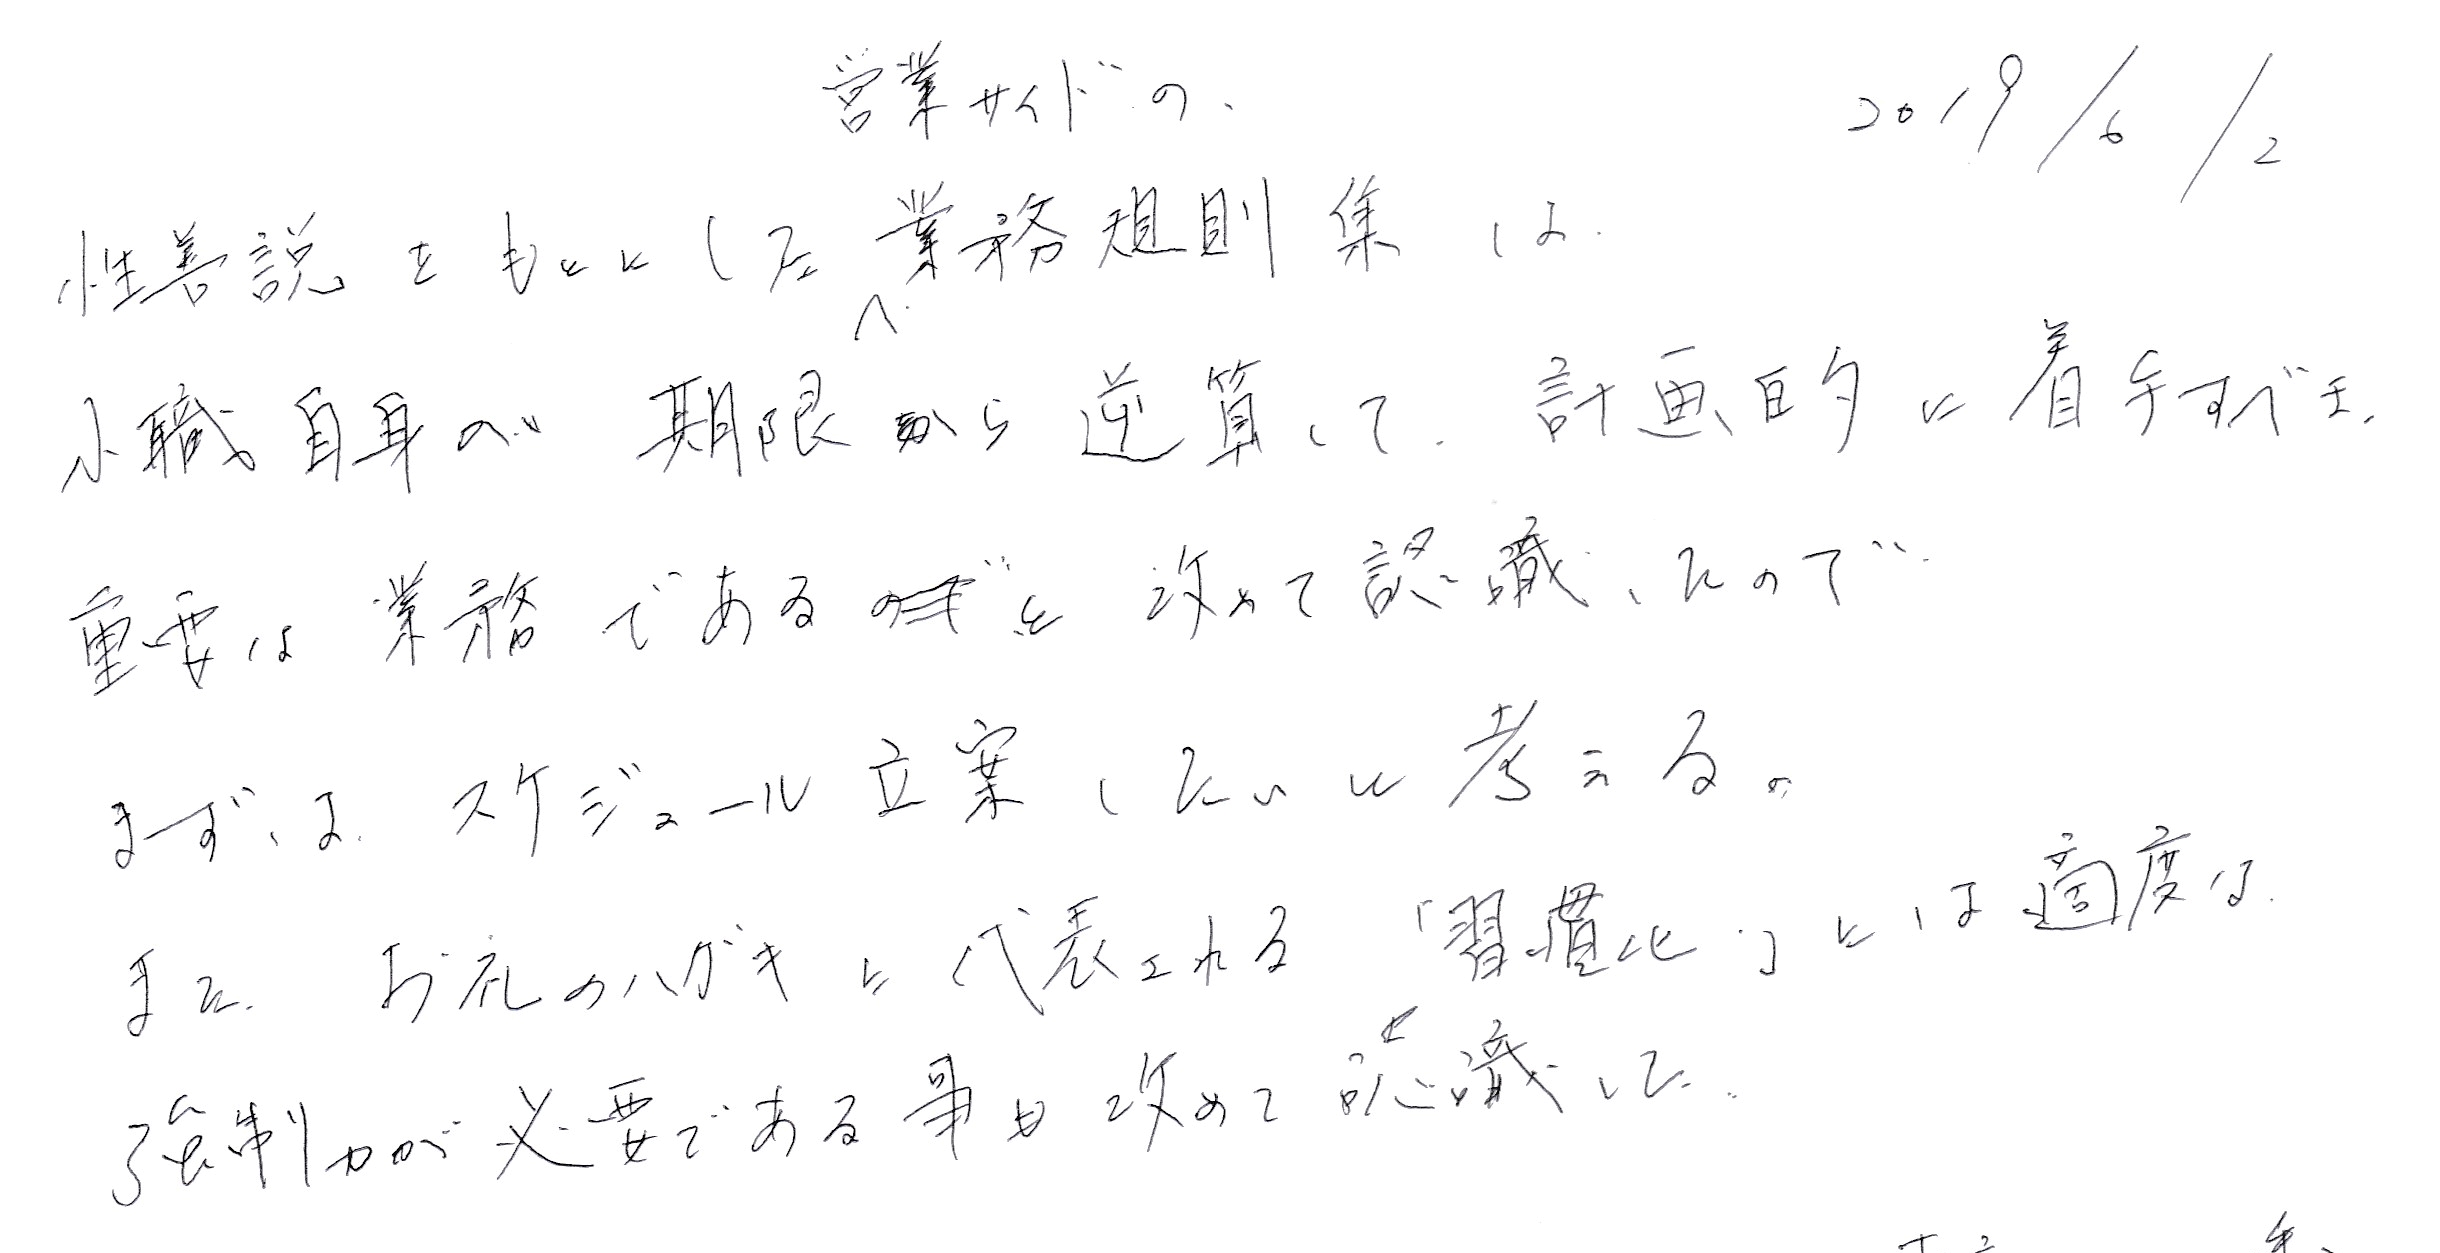 2019/6/2
営業サイドの、
性善説をもとにした業務規則集は、
小職自身が期限から逆算して、計画的に着手すべき、
重要な業務であるのを改めて認識したので、
まずは、スケジュール立案したいと考える。
また、お礼のハガキに代表される「習慣化」には適度な、
強制力が必要である事も改めて認識した。